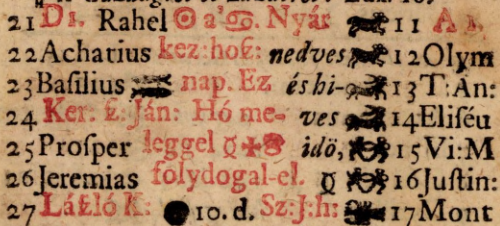 21 D 1. Rahel ☉ a' ♋. Nyár 11 A
22 Achatius kez: hoſz: nedves 12 Olym
23 Baſilius nap. Ez és hi- 13 T: An:
24 Ker. ſz: Ján: Hó me- ves 14 Eliſéu
25 Proſper leggel ☿ idö, 15 Vi: M
26 Jeremias folydogal-el. ☿ 16 Juſtin:
27 Láſzló K: ● 10. d. Sz: J: h: 17 Mont